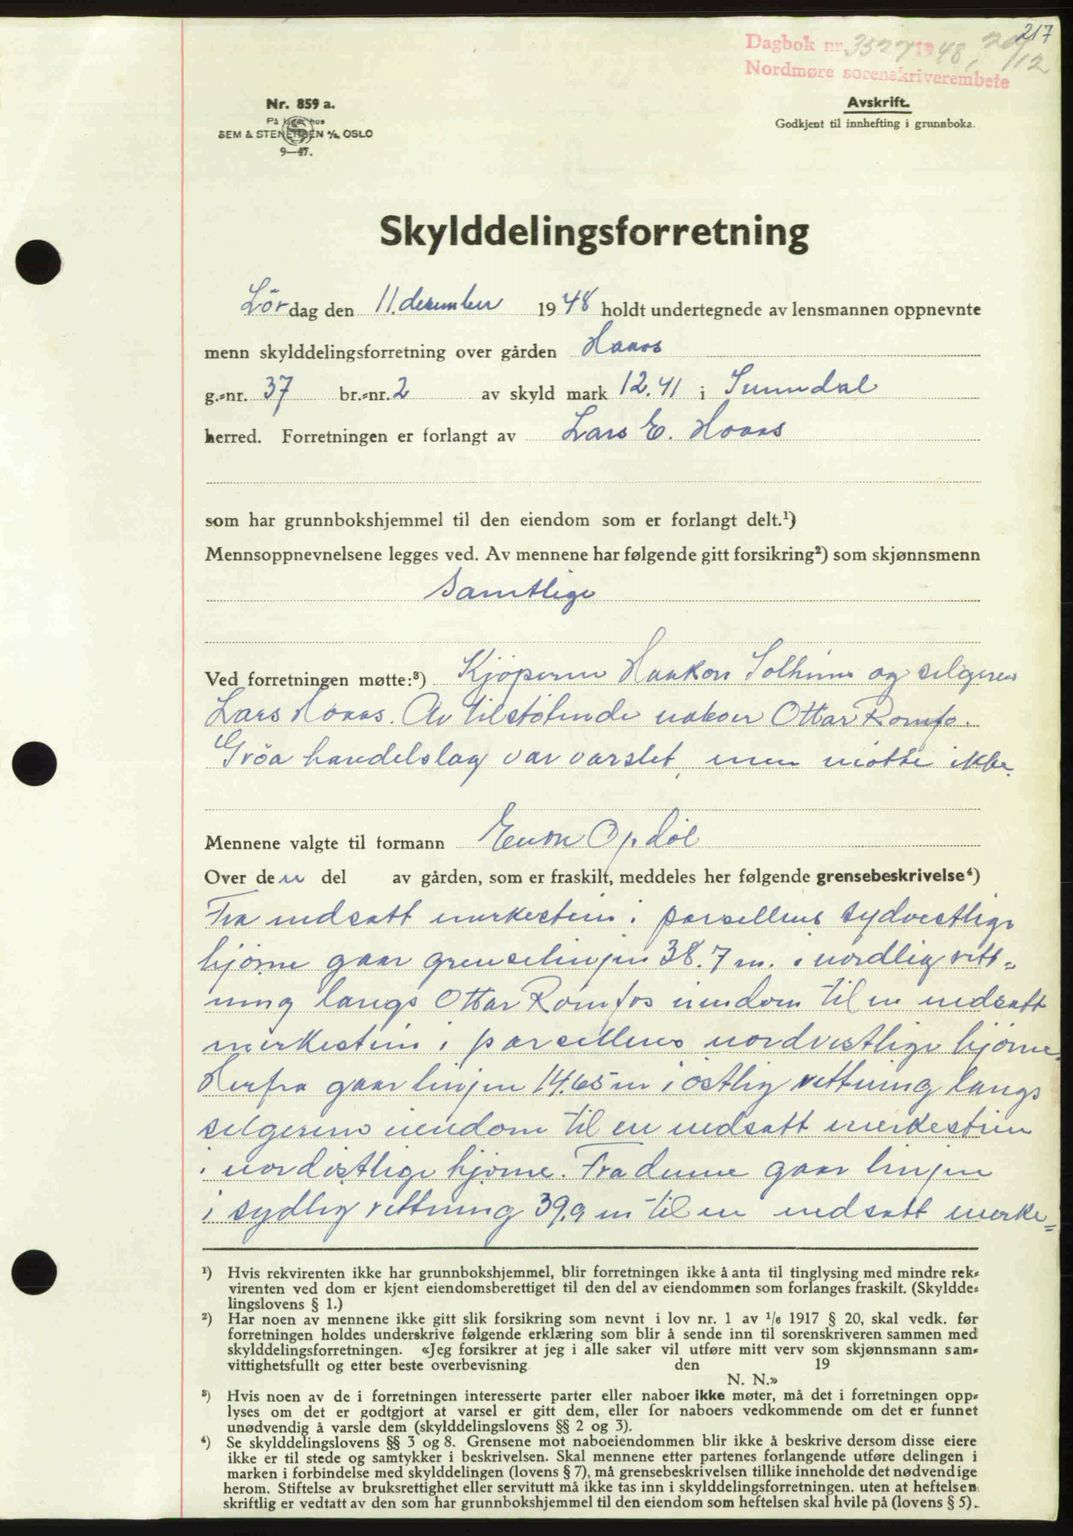 217
Dagbok nr. 3527 1948, 20/12
Nordmøre sorenskriverembete
Nr. 859 a.
På lager hos
SEM & STENERSEN A/S, OSLO
9—47.
Avskrift.
Godkjent til innhefting i grunnboka.
Skylddelingsforretning
Lördag den 11. desember 1948 holdt undertegnede av lensmannen oppnevnte
menn skylddelingsforretning over gården Haaos
g.-nr. 37 br.-nr. 2 av skyld mark 12.41 i Sunndal
herred. Forretningen er forlangt av Lars E. Hoaas
som har grunnbokshjemmel til den eiendom som er forlangt delt.¹)
Mennsoppnevnelsene legges ved. Av mennene har følgende gitt forsikring²) som skjønnsmenn
Samtlige
Ved forretningen møtte:³) Kjöperen Haakon Solheim og selgeren
Lars Hoaas. Av tilstötende naboer Ottar Romfo.
Gröa handelslag var varslet, men mötte ikke.
Mennene valgte til formann Opdöl
Over den del av gården, som er fraskilt, meddeles her følgende grensebeskrivelse⁴)
Fra nedsatt merkestein i parsellens sydvestlige
hjörne gaar grenselinjen 38.7 m. i nordlig rett-
ning langs Ottar Romfos eiendom til en nedsatt
merkestein i parsellens nordvestlige hjörne.
Herfra gaar linjen 14.65 m i östlig rettning langs
selgerens eiendom til en nedsatt merkestein
i nordöstlige hjörne. Fra denne gaar linjen
i sydlig rettning 39.9 m til en nedsatt merke-
¹) Hvis rekvirenten ikke har grunnbokshjemmel, blir forretningen ikke å anta til tinglysing med mindre rek-
virenten ved dom er kjent eiendomsberettiget til den del av eiendommen som forlanges fraskilt. (Skyldde-
lingslovens § 1.)
²) Har noen av mennene ikke gitt slik forsikring som nevnt i lov nr. 1 av 1/6 1917 § 20, skal vedk. før
forretningen holdes underskrive følgende erklæring som blir å sende inn til sorenskriveren sammen med
skylddelingsforretningen. «Jeg forsikrer at jeg i alle saker vil utføre mitt verv som skjønnsmann sam-
vittighetsfullt og etter beste overbevisning den 19
N. N.»
³) Hvis noen av de i forretningen interesserte parter eller naboer ikke møter, må det i forretningen opp-
lyses om det er godtgjort at varsel er gitt dem, eller for naboers vedkommende om det er funnet
unødvendig å varsle dem (skylddelingslovens §§ 2 og 3).
⁴) Se skylddelingslovens §§ 3 og 8. Grensene mot naboeiendommen blir ikke å beskrive dersom disse eiere
ikke er til stede og samtykker i beskrivelsen. Skal mennene etter partenes forlangende utføre delingen i
marken i forbindelse med skylddelingen (lovens § 7), må grensebeskrivelsen tillike inneholde det nødvendige
herom. Stiftelse av bruksrettighet eller servitutt må ikke tas inn i skylddelingsforretningen. uten at heftelsen
skriftlig er vedtatt av den som har grunnbokshjemmel til den eiendom som heftelsen skal hvile på (lovens § 5).